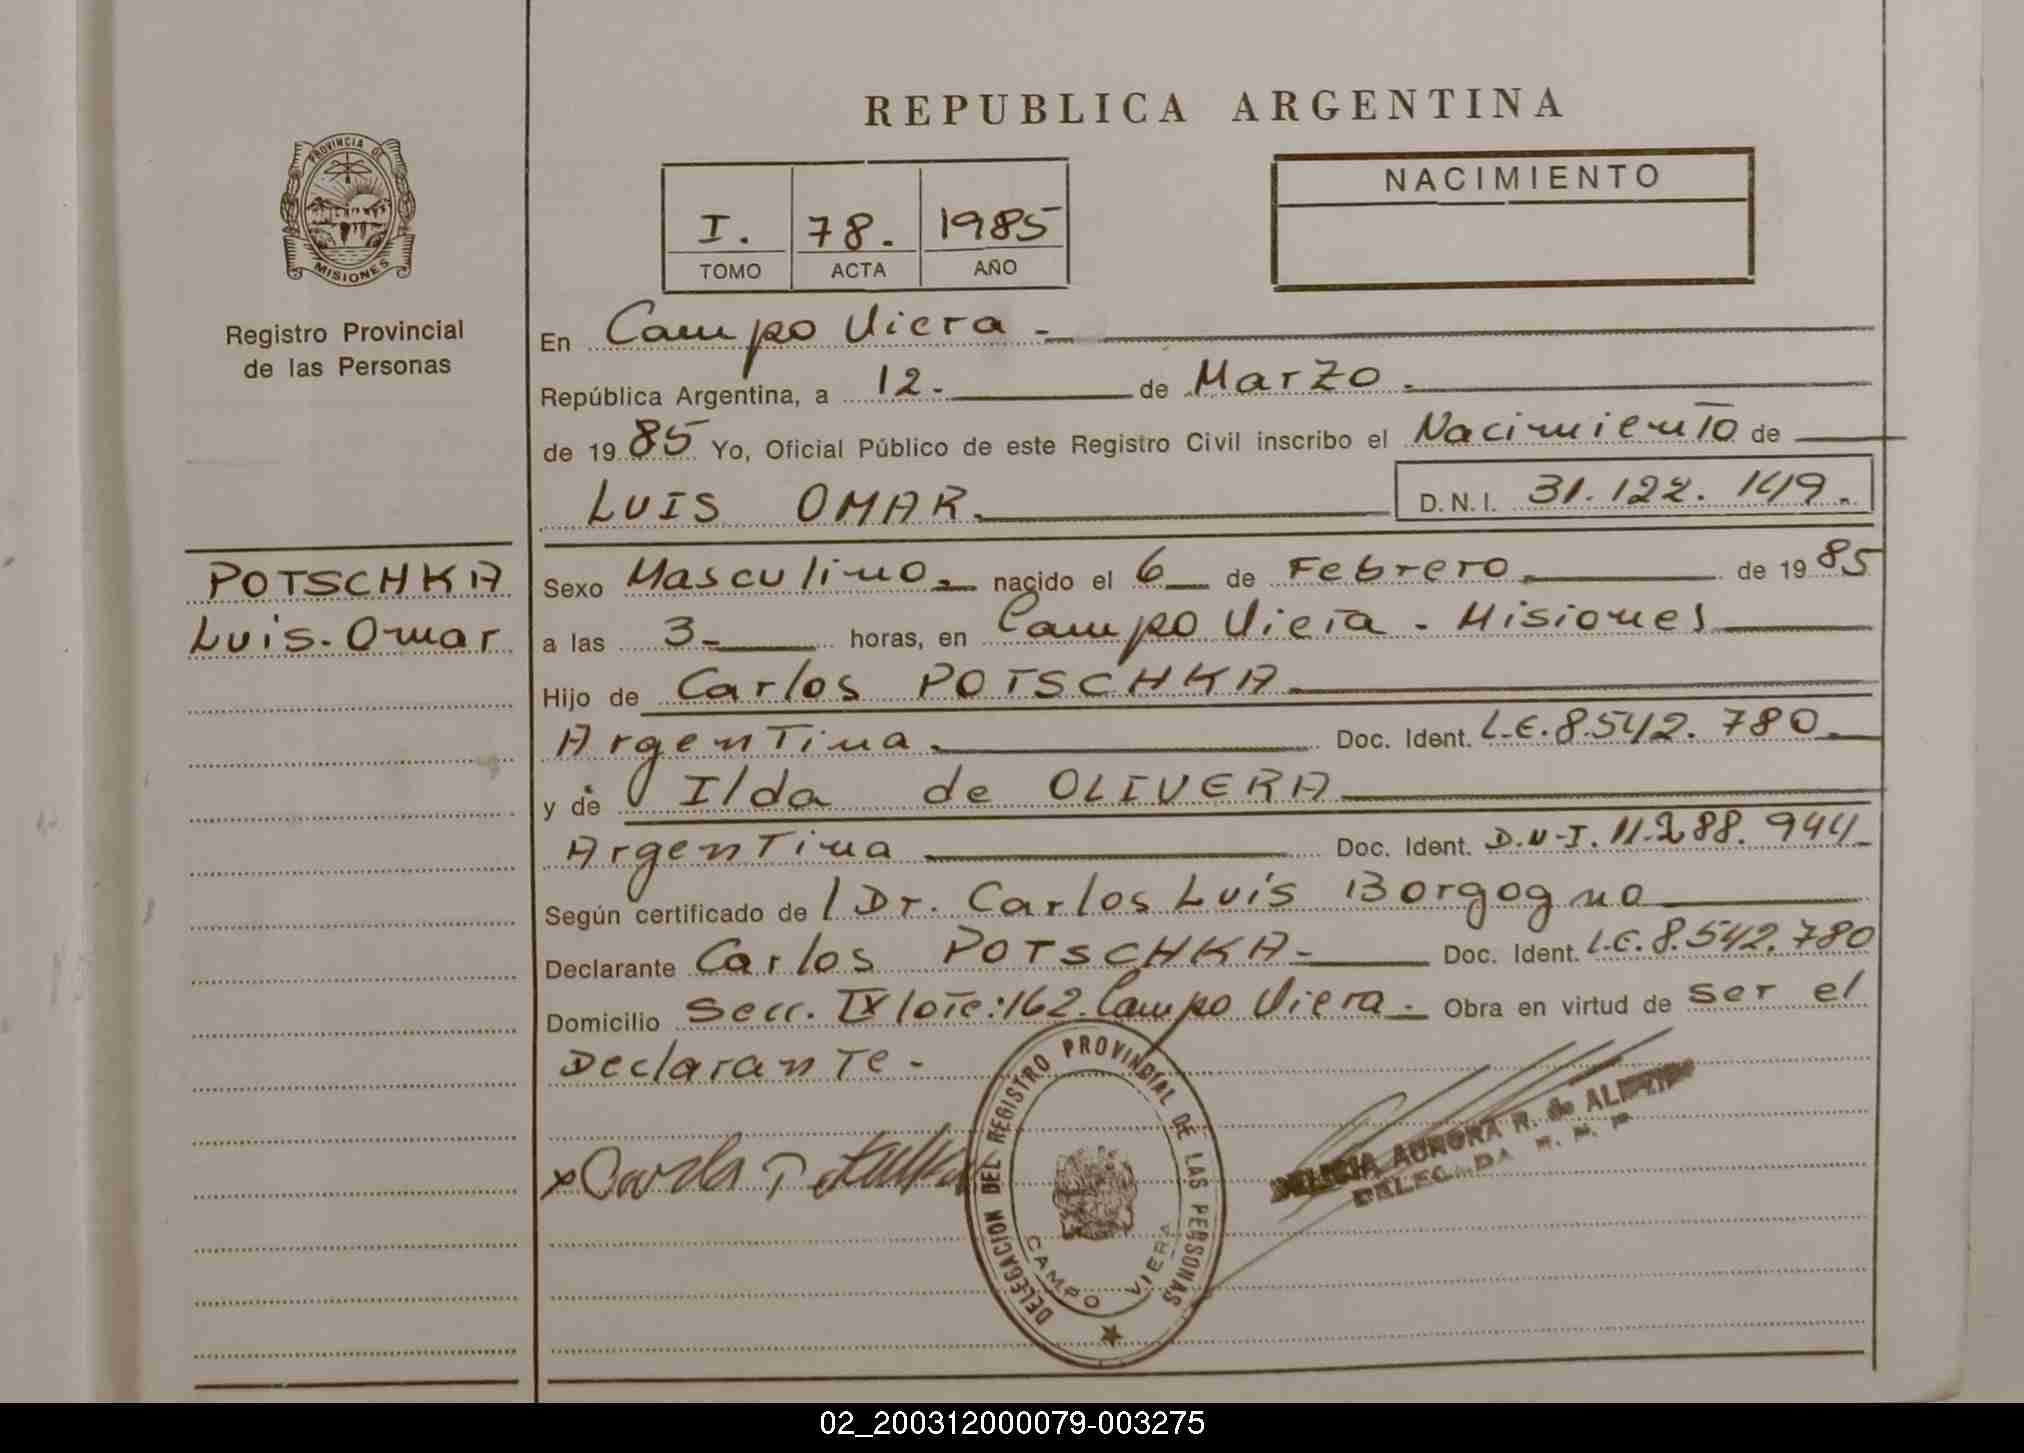 REPUBLICA ARGENTINA
PROVINCIA DE
MISIONES
Registro Provincial
de las Personas
I. 78. 1985
TOMO ACTA AÑO
NACIMIENTO
En Campo Viera -
República Argentina, a 12. de Marzo.
de 19 85 Yo, Oficial Público de este Registro Civil inscribo el Nacimiento de
LUIS OMAR. D.N.I. 31.122.149.
POTSCHKA
Luis-Omar
Sexo Masculino. nacido el 6 de Febrero. de 19 85
a las 3- horas, en Campo Viera - Misiones
Hijo de Carlos POTSCHKA
Argentina. Doc. Ident. L.E.8.542.780.
y de Ilda de OLIVERA
Argentina Doc. Ident. D.N.I. 11.288.944
Según certificado de / Dr. Carlos Luis Borgogno
Declarante Carlos POTSCHKA- Doc. Ident. L.E.8.542.780
Domicilio Secc. IX lote:162. Campo Viera. Obra en virtud de ser el
Declarante -
DELEGACION DEL REGISTRO PROVINCIAL DE LAS PERSONAS
CAMPO VIERA
DELICIA AURORA R. de
DELEGADA R. P.
02_200312000079-003275